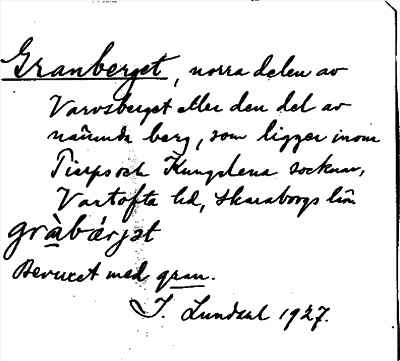 Granberget, norra delen av
Varvsberget eller den del av
nämnda berg, som ligger inom
Tiarps och Kungslena socknar,
Vartofta hd, Skaraborgs län
gràbǽrjət
Bevuxet med gran.
J. Lundahl 1927.